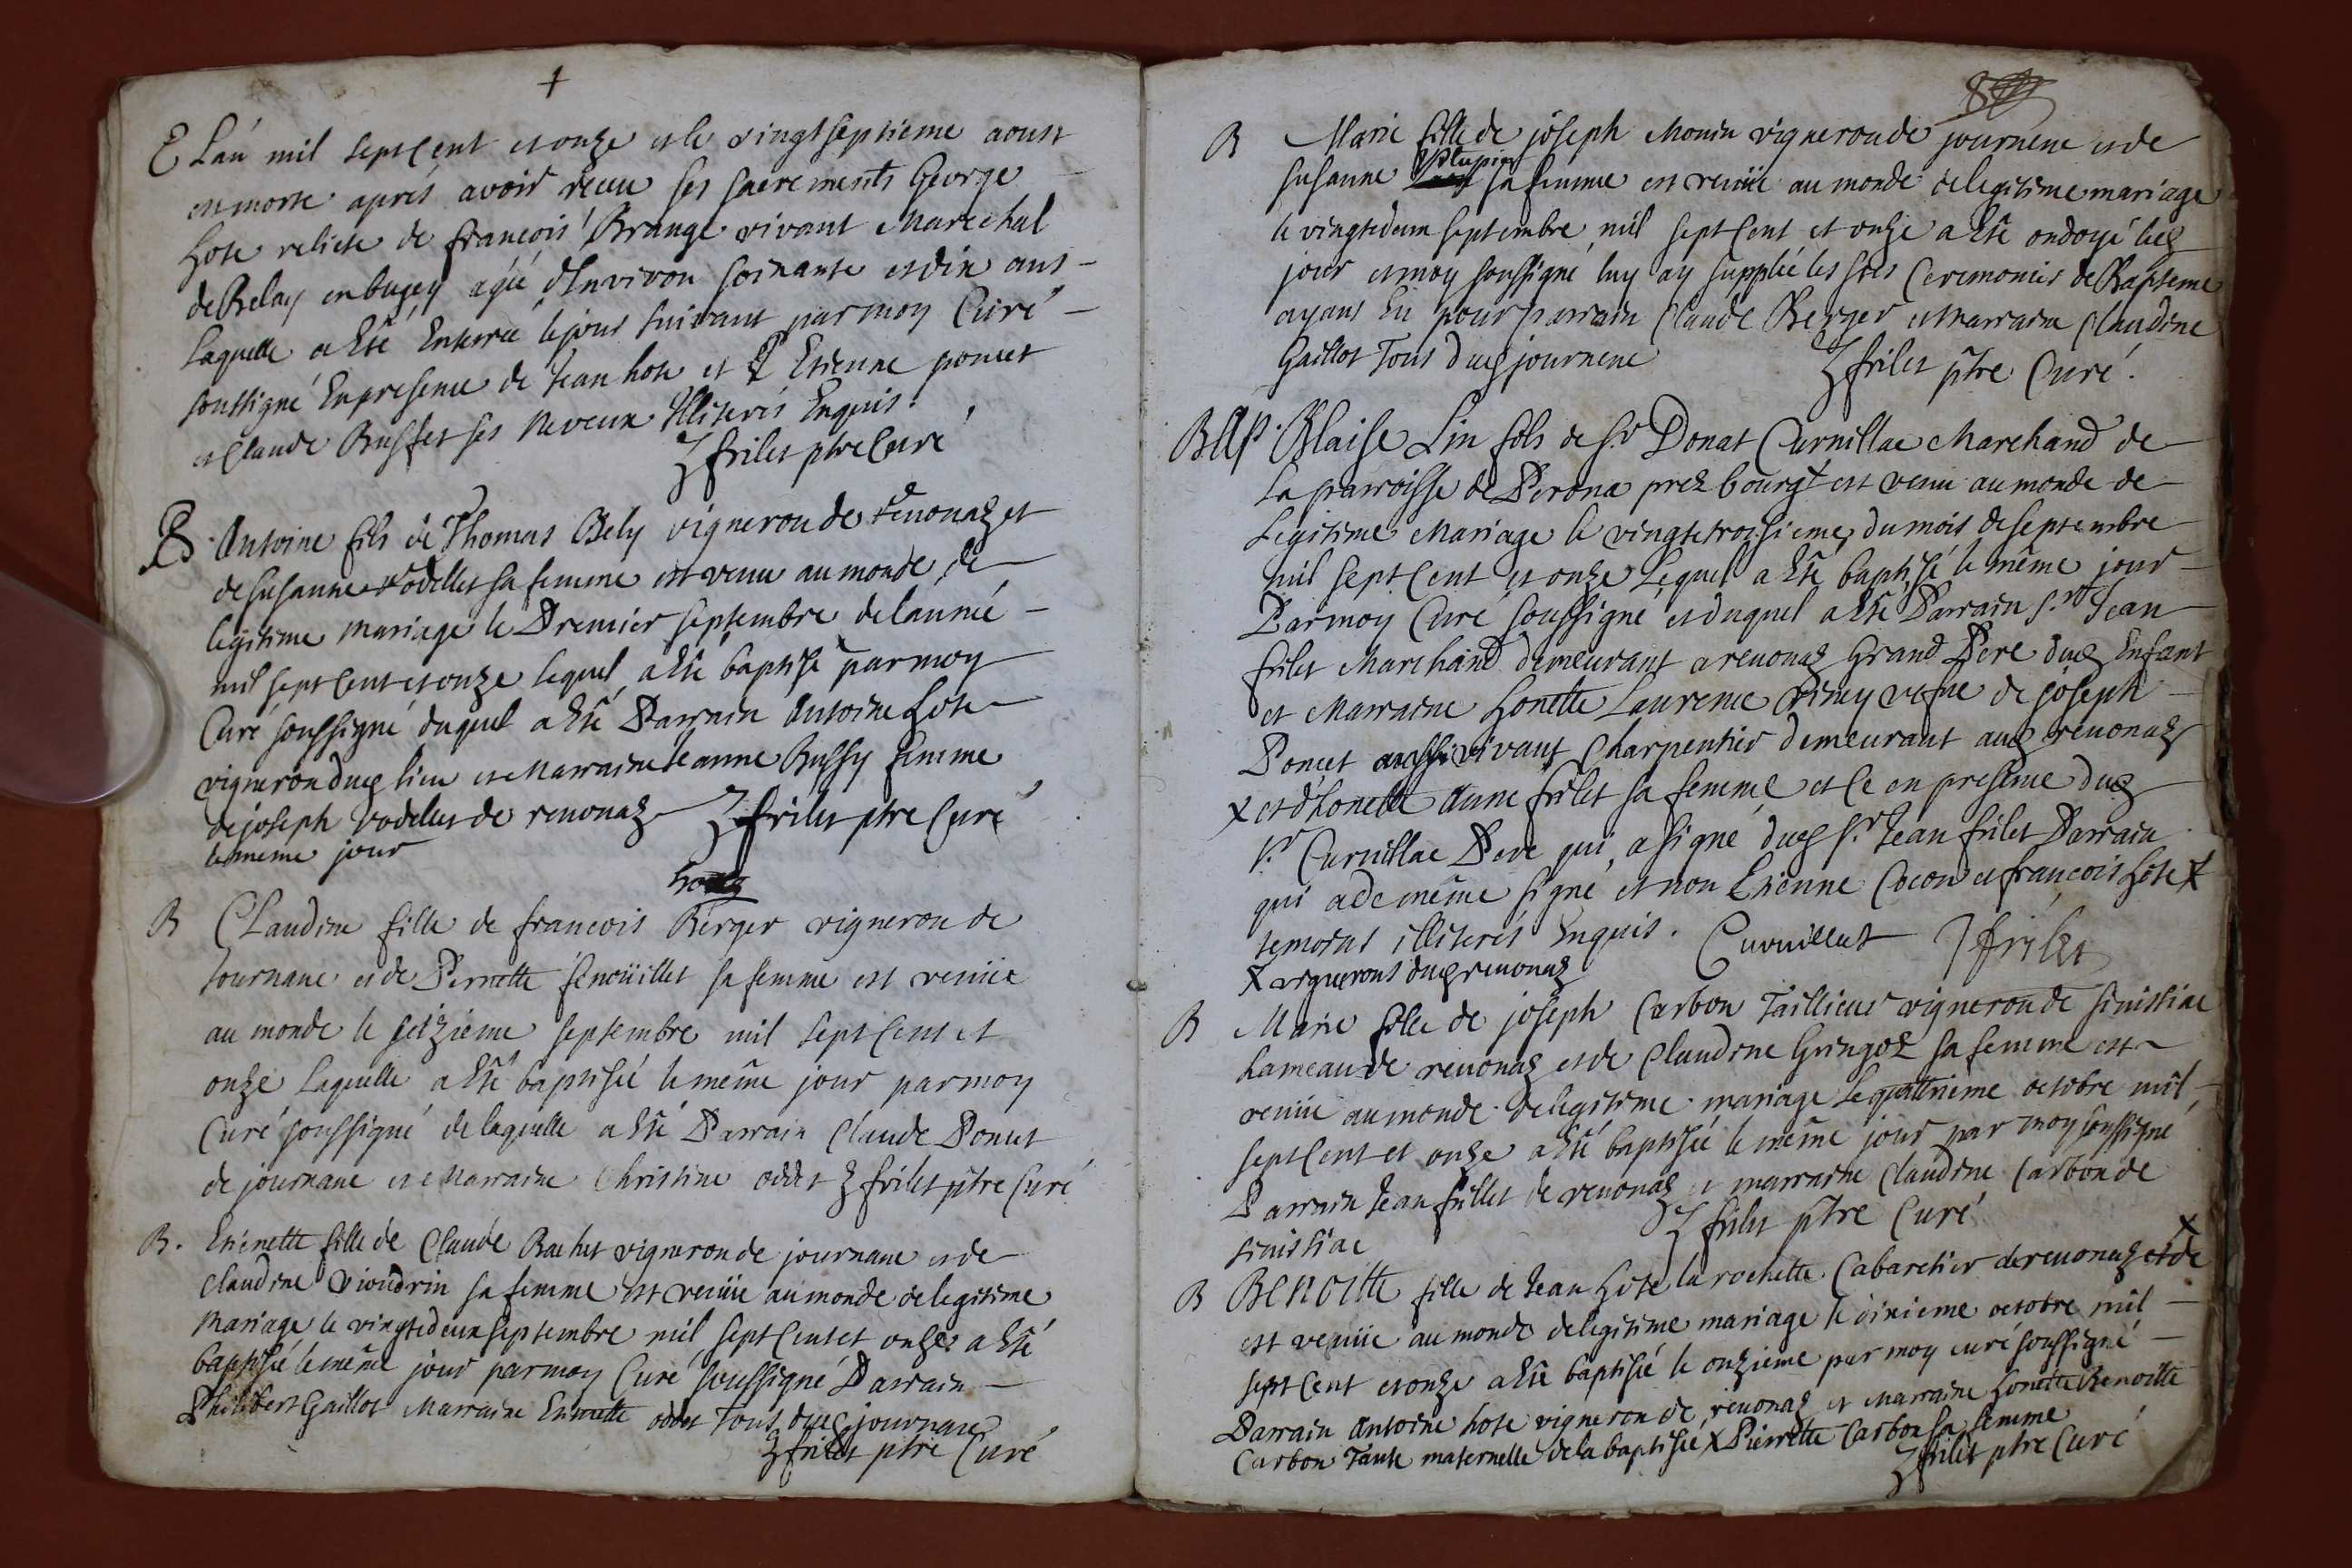 E Lan mil sept Cent et onze et le vingt septieme aoust
est morte aprés avoir receu ses sacrements George
hote relicte de francois Brange vivant Marechal
de Belay en bugey agée d'Environ soixante et dix ans
Laquelle a Esté Enterrée le jour suivant par moy Curé
soussigné En presence de Jean hote et Etienne poncet
et Claude Buffet ses Neveux Illiterés Enquis.
J frilet ptre Curé
B Antoine fils de Thomas Bely vigneron de reuonaz et
de susanne vodellet sa femme est venu au monde de
legitime mariage le Premier septembre de lannée
mil sept Cent et onze lequel a Esté baptisé par moy
Curé soussigné duquel a Esté Parrain Antoine hote
vigneron dud lieu et Marraine Jeanne Bussy femme
de joseph vodellet de reuonaz J frilet ptre Curé
le meme jour
B CLaudine fille de francois Berger vigneron de
Journane et de Pernette fenoüillet sa femme est venüe
au monde le seizieme septembre mil sept Cent et
onze Laquelle a Esté baptisée le meme jour par moy
Curé soussigné de laquelle a Esté Parrain Claude Poncet
de journane et Marraine Christine oddet J frilet ptre Curé
B. Etienette fille de Claude Rachet vigneron de journane et de
Claudine Vioudrin sa femme est venüe au monde de legitime
Mariage le vingtdeux septembre mil sept Cent et onze a Esté
baptisée le même jour par moy Curé soussigné Parrain
Philibert Gaillot Marraine Etienette oddet Tous dud journane
J frilet ptre Curé
8
B Marie fille de joseph Monin vigneron de journene et de
susanne Plupin sa femme est venüe au monde de legitime mariage
le vingtdeux septembre mil sept Cent et onze a Esté ondoyé led
jour et moy soussigné luy ay supplée les stes Ceremonies de Bapteme
ayant Eu pour parrain Claude Berger et Marraine Claudine
Gaillot Tous dud journene J frilet ptre Curé.
BAp. Blaise Lin fils de sr Donat Curnillac Marchand de
La parroisse de Perona prez bourg est venu au monde de
Legitime Mariage le vingt troisieme du mois de septembre
mil sept Cent et onze Lequel a Esté baptisé le même jour
Par moy Curé soussigné et duquel a Esté Parrain sr Jean
frilet Marchand demeurant a reuonaz Grand Pere dud Enfant
et Marraine honette Laurence Piney vefue de joseph
Poncet vivant Charpentier demeurant aud reuonaz
X et d'honette Anne frilet sa femme et ce en presence dud
sr Curnillac Pere qui a signé dud sr Jean frilet Parrain
qui a de même signé et non Etienne Cocon et francois hote X
temoins illiterés Enquis. Curnillat J frilet
X vignerons dud reuonaz
B Marie fille de joseph Carbon Taillieur vigneron de sinissiac
hameau de reuonaz et de Claudine Gringoz sa femme est
venüe au monde de legitime mariage Le quattrieme octobre mil
sept Cent et onze a Esté baptisée le même jour par moy soussigné
Parrain Jean frillet de reuonaz et marraine Claudine Carbon de
sinissiac J frilet ptre Curé
B BENOITTE fille de Jean hote la rochette Cabaretier de reuonaz et de X
est venüe au monde de legitime mariage le dixieme octobre mil
sept Cent et onze a Esté baptisée le onzieme par moy curé soussigné
Parrain Antoine hote vigneron de reuonaz et Marraine honette Benoitte
Carbon Tante maternelle de la baptisée X Pierrette Carbon sa femme
J frilet ptre Curé